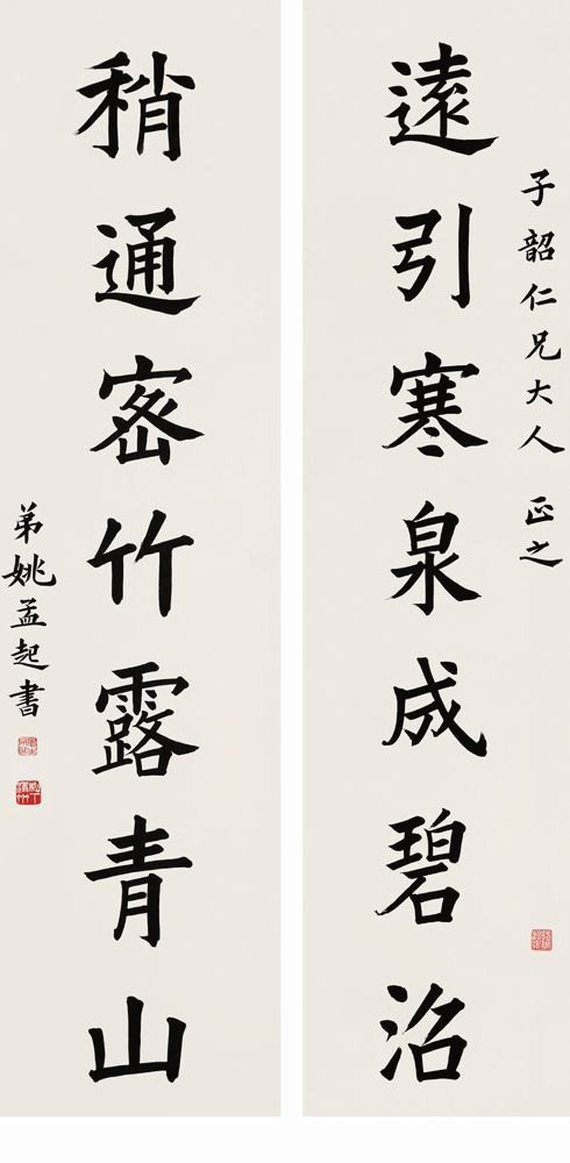 子韶仁兄大人 正之
遠引寒泉成碧沼
稍通密竹露青山
弟姚孟起書